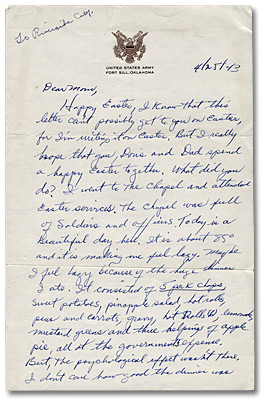 To Riverside Calif.
UNITED STATES ARMY
FORT SILL, OKLAHOMA
4/25/43
Dear Mom,
Happy Easter, I know that this
letter can't possibly get to you on Easter,
for I'm writing it on Easter. But I really
hope that you, Doris and Dad spend
a happy Easter together. What did you
do? I went to the Chapel and attended
Easter services. The Chapel was full
of Soldiers and officers. Today is a
Beautiful day here. It is about 85°
and it is making me feel lazy. Maybe
I feel lazy because of the huge dinner
I ate. It consisted of 5 pork chops,
sweet potatoes, pineapple salad, hot rolls,
peas and carrots, gravy, hot Rolls, lemonade,
mustard greens and three helpings of apple
pie, all at the governments expense.
But, the psychological effect wasn't there,
I don't care how good the dinner was